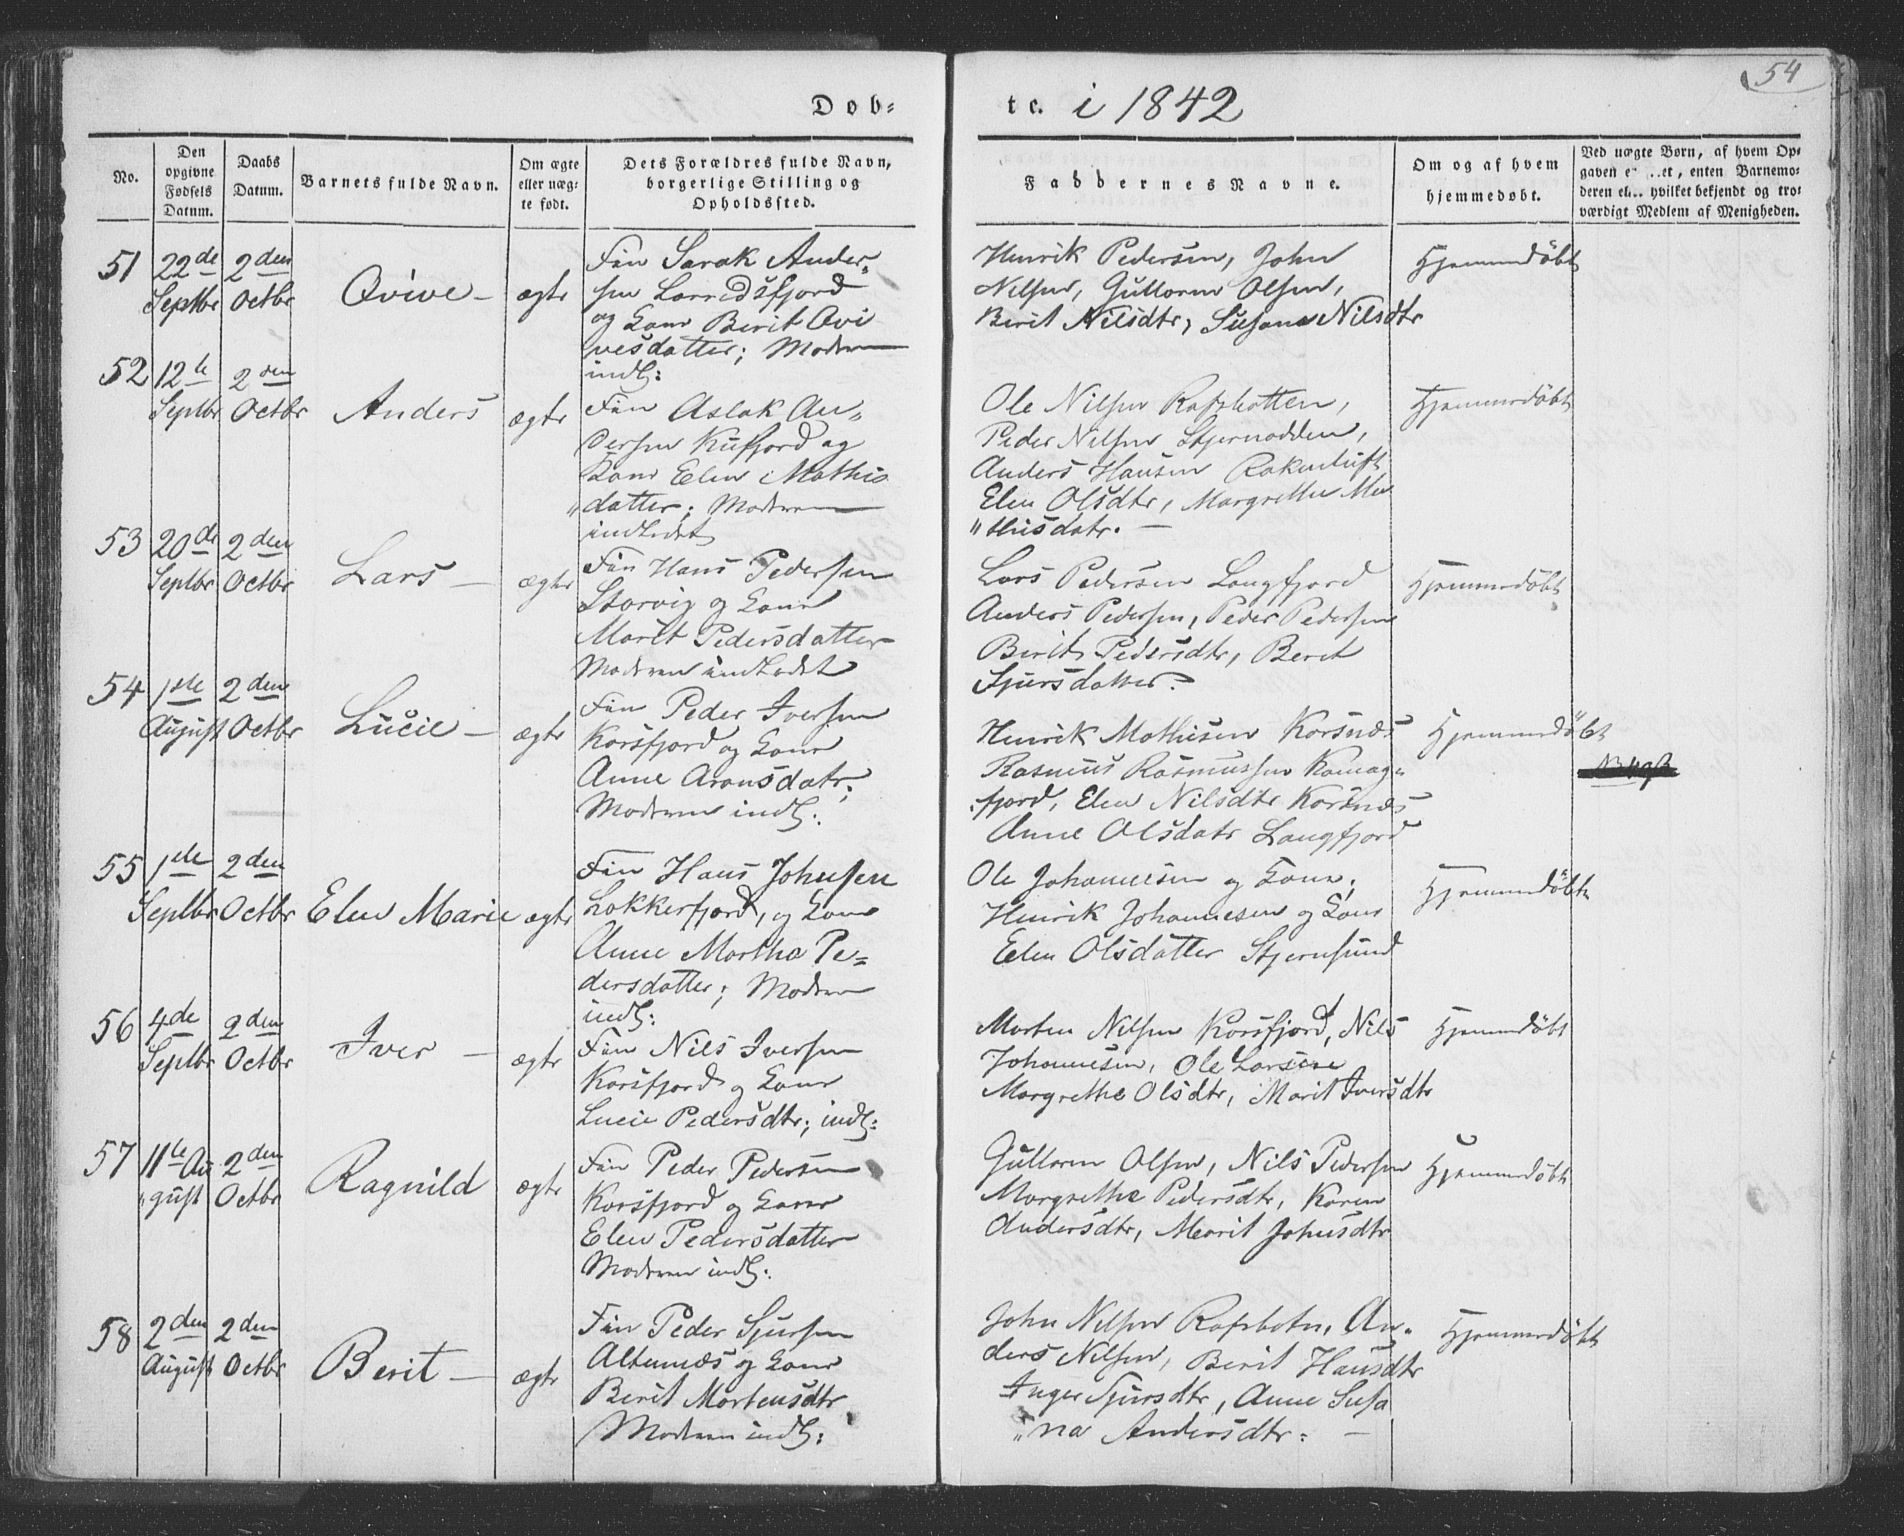 54
Døb-
te. i 1842
No.
Den
opgivne
Fødsels
Datum.
Daabs
Datum.
Barnets fulde Navn.
Om ægte
eller uæg-
te født.
Dets Forældres fulde Navn,
borgerlige Stilling og
Opholdssted.
Faddernes Navne.
Om og af hvem
hjemmedøbt.
Ved uægte Børn, af hvem Op-
gaven et, enten Barnemo-
deren hvilket bekjendt og tro-
værdigt Medlem af Menigheden.
51
22de
Septbr
2den
Octbr
Ovive
ægte
Fin Sarak Ander-
sen
og Kone Berit Ovi
vesdatter; Moderen
indl:
Henrik Pedersen, John
Nilsen, Guttorm Olsen,
Berit Nilsdtr, Susane Nilsdtr
Hjemmedøbt
52
12te
Septbr
2den
Octbr
Anders
ægte
Fin Aslak An-
dersen Kufjord og
Kone Elen Mathis
datter; Moderen
indledet
Ole Nilsen Rafsbotten,
Peder Nilsen Stjernodden,
Anders Hansen
Elen Olsdtr, Margrethe Ma
"thisdatr.
Hjemmedøbt
53
20de
Septbr
2den
Octbr
Lars
ægte
Fin Hans Pedersen
Storvig og Kone
Marit Pedersdatter
Moderen indledet
Lars Pedersen Langfjord
Anders Pedersen, Peder Pedersen
Berit Pedersdtr, Berit
Sjursdatter.
Hjemmedøbt
54
1ste
August
2den
Octbr
Lucie
ægte
Fin Peder Iversen
Korsfjord og Kone
Anne Aronsdatr;
Moderen indl:
Henrik Mathisen Korsnæs
Rasmus Rasmussen Komag-
fjord, Elen Nilsdtr Korsnæs
Anne Olsdatr Langfjord
Hjemmedøbt
55
1ste
Septbr
2den
Octbr
Elen Marie
ægte
Fin Hans Johnsen
Lokkerfjord, og Kone
Anne Martha Pe-
dersdatter; Moderen
indl:
Ole Johannesen og Kone;
Henrik Johannesen og Kone
Elen Olsdatter Stjernsund
Hjemmedøbt
56
4de
Septbr
2den
Octbr
Iver
ægte
Fin Nils Iversen
Korsfjord og Kone
Lucie Pedersdtr; indl:
Morten Nilsen Korsfjord, Nils
Johannesen, Ole Larsen
Margrethe Olsdtr, Marit Iversdtr
Hjemmedøbt
57
11te Au
"gust
2den
Octbr
Ragnild
ægte
Fin Peder Pedersen
Korsfjord og Kone
Elen Pedersdatter
Moderen indl:
Guttorm Olsen, Nils Pedersen
Margrethe Pedersdtr, Karen
Andersdtr, Marit Johnsdtr
Hjemmedøbt
58
2den
August
2den
Octbr
Berit
ægte
Fin Peder Sjursen
Altenæs og Kone
Berit Mortensdtr
Moderen indl:
John Nilsen Rafsbotn, An-
ders Nilsen, Berit Hansdtr
Inger Sjursdtr, Anne Susa
"na Andersdtr:
Hjemmedøbt